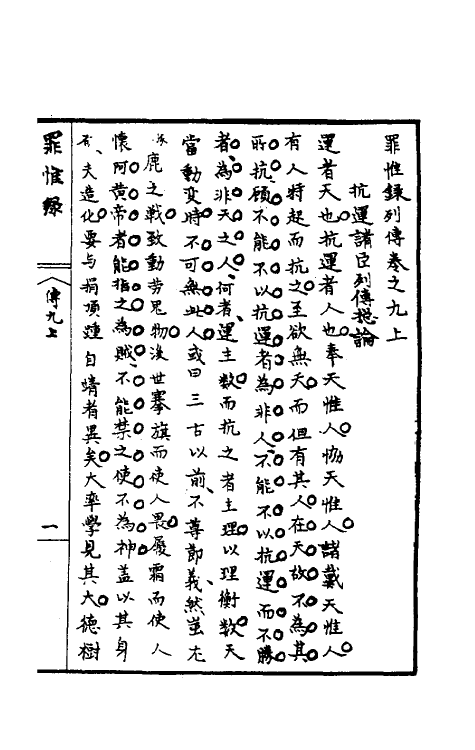 罪惟錄列傳卷之九上
抗運諸臣列傳總論
運者天也抗運者人也奉天惟人協天惟人諸戴天惟人
有人特起而抗之至欲無天而但有其人在天故不為其
所抗顧不能不以抗運者為非人不能不以抗運而不勝
者為非天之人何者運主數而抗之者主理以理衡數天
當動變時不可無此人或曰三古以前不尊節義然蚩尤
鹿之戰致動勞鬼物後世搴旗而使人畏履霜而使人
懷阿黃帝者能指之為賊不能禁之使不為神蓋以其身
夫造化要與捐頂踵自靖者異矣大率學見其大德樹
罪惟錄
傳九上
一